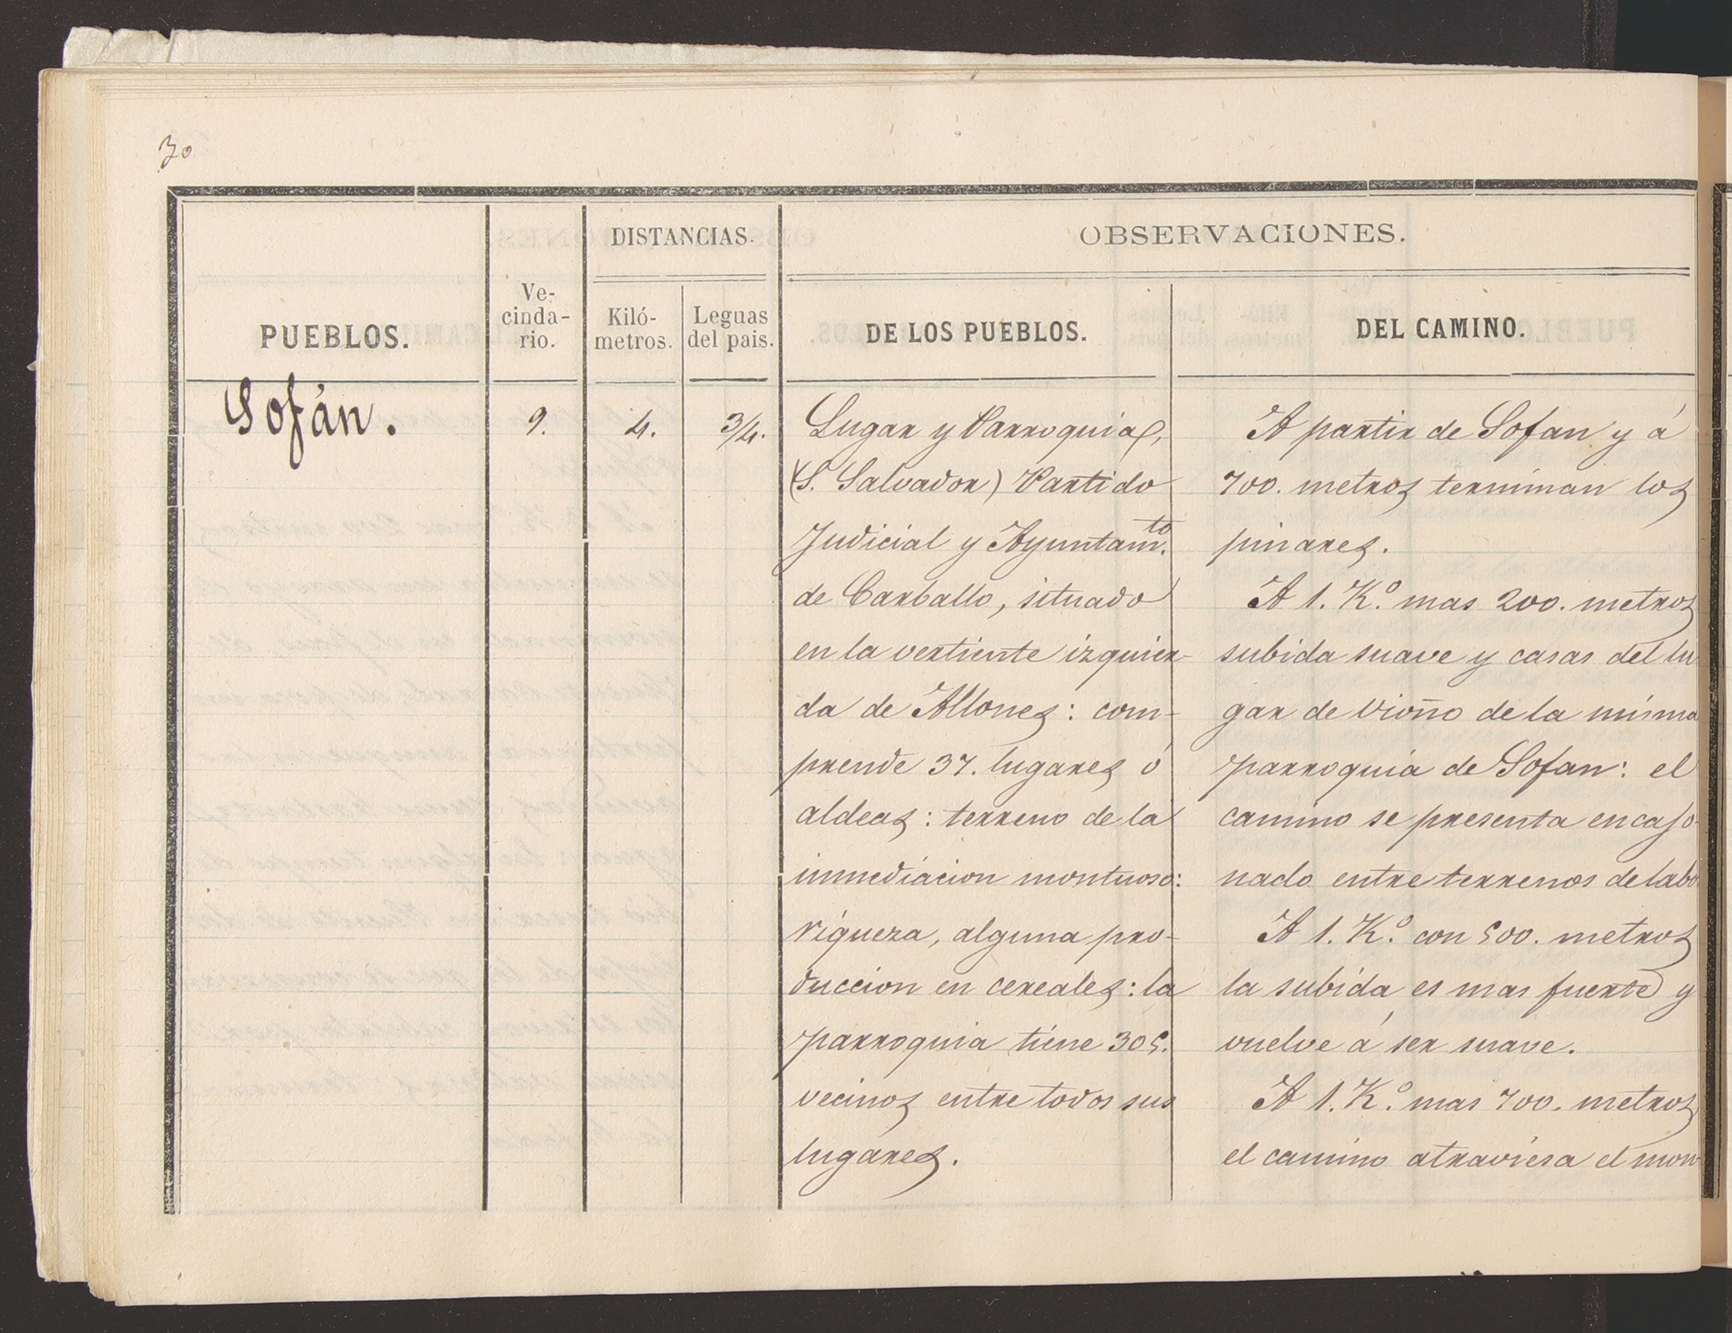 30
DISTANCIAS.
OBSERVACIONES.
PUEBLOS.
Ve-
cinda-
rio.
Kiló-
metros.
Leguas
del pais.
DE LOS PUEBLOS.
DEL CAMINO.
Sofán.
9.
4.
3/4.
Lugar y Parroquia,
(S. Salvador) Partido
Judicial y Ayuntamto.
de Carballo, situado
en la vertiente izquier-
da de Allones: com-
prende 37. lugares ó
aldeas: terreno de la
inmediacion montuoso:
riqueza, alguna pro-
duccion en cereales: la
parroquia tiene 305.
vecinos entre todos sus
lugares.
A partir de Sofan y á
700. metros terminan los
pinares.
A 1. Ko. mas 200. metros
subida suave y casas del lu
gar de Vioño de la misma
parroquia de Sofan: el
camino se presenta encajo-
nado entre terrenos de labor
A 1. Ko. con 500. metros
la subida es mas fuerte y
vuelve á ser suave.
A 1. Ko. mas 700. metros
el camino atraviesa el mon-